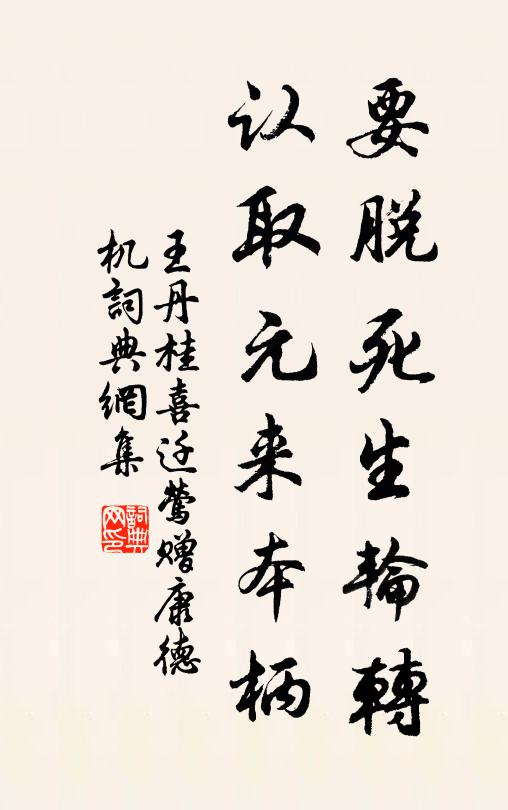 要脱死生輪轉
认取元来本柄
王丹桂喜迁莺赠康德
机詞典網集
詞典網印